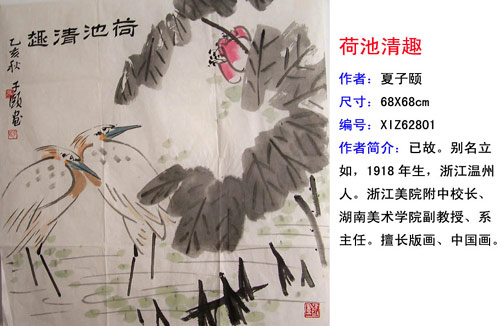 趣清池荷
乙亥秋
子颐画
荷池清趣
作者：夏子颐
尺寸：68X68cm
编号：XIZ62801
作者简介：已故。别名立
如，1918 年生，浙江温州
人。浙江美院附中校长、
湖南美术学院副教授、系
主任。擅长版画、中国画。